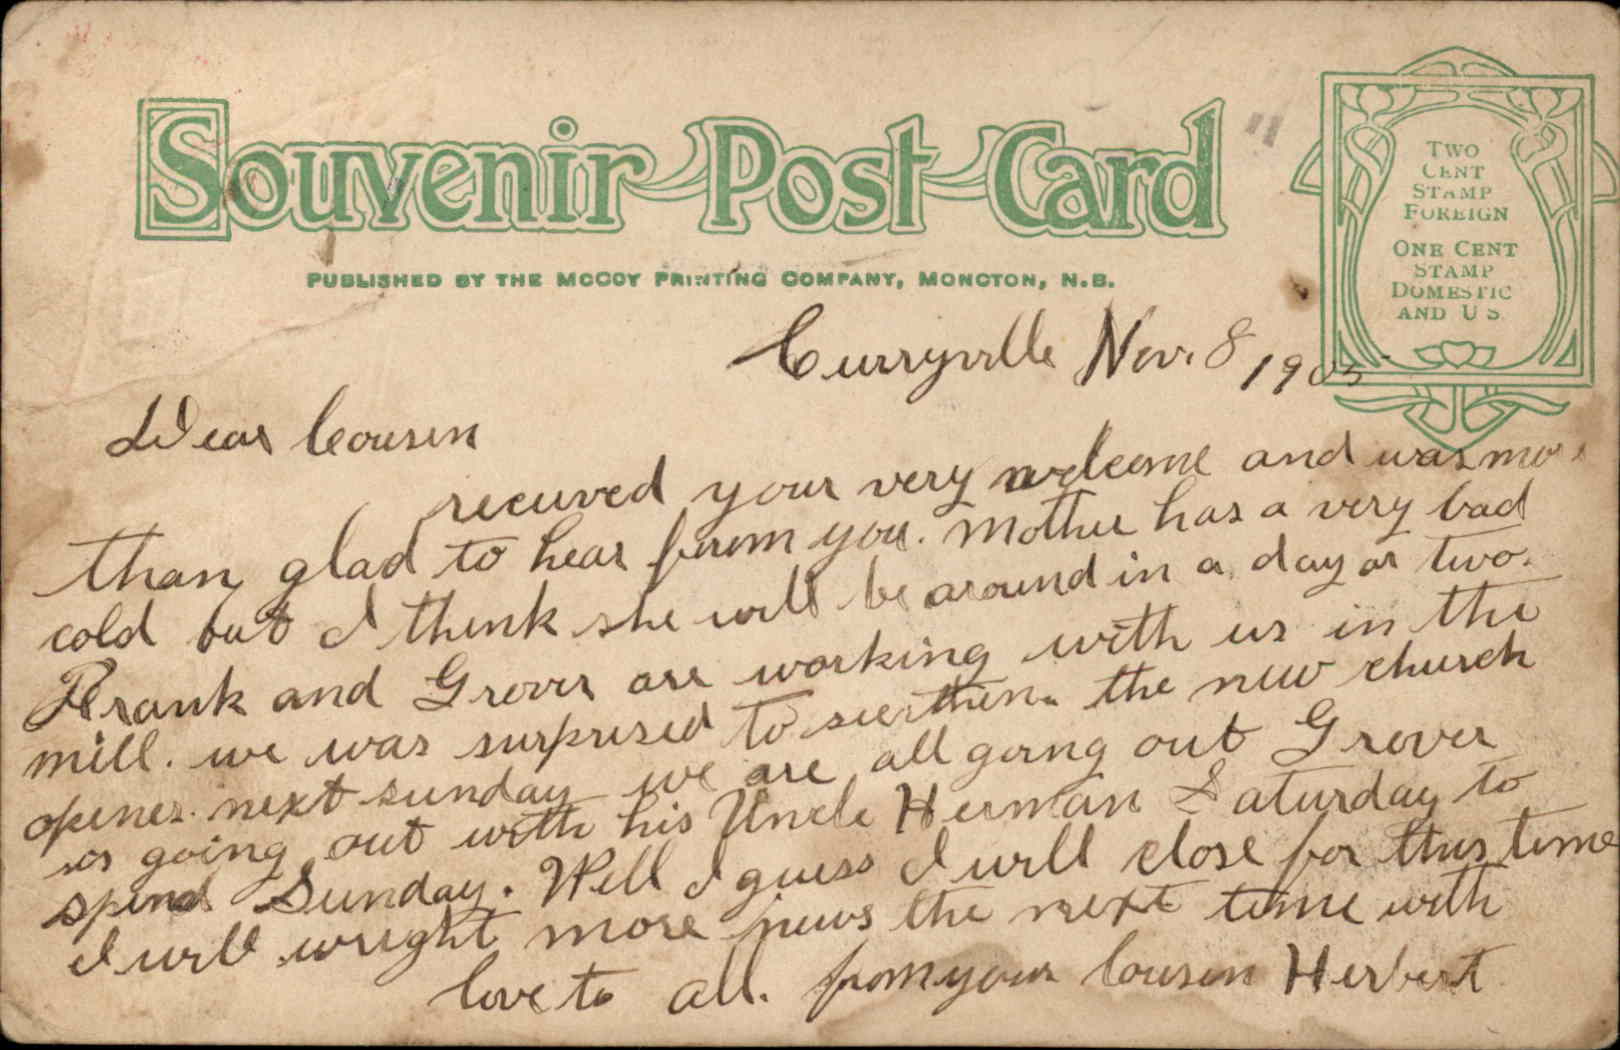 Souvenir Post Card
TWO
CENT
STAMP
FOREIGN
ONE CENT
STAMP
DOMESTIC
AND U S
PUBLISHED BY THE MCCOY PRINTING COMPANY, MONCTON, N.B.
Curryville Nov. 8 1905
Dear Cousin
recieved your very welcome and was mo
than glad to hear from you. Mother has a very bad
cold but I think she will be around in a day or two.
Frank and Grover are working with us in the
mill. we was surprised to see them. the new church
opines next sunday we are all going out Grover
is going out with his Uncle Herman Saturday to
spend Sunday. Well I guess I will close for this time
I will wright more news the next time with
love to all. from your Cousin Herbert